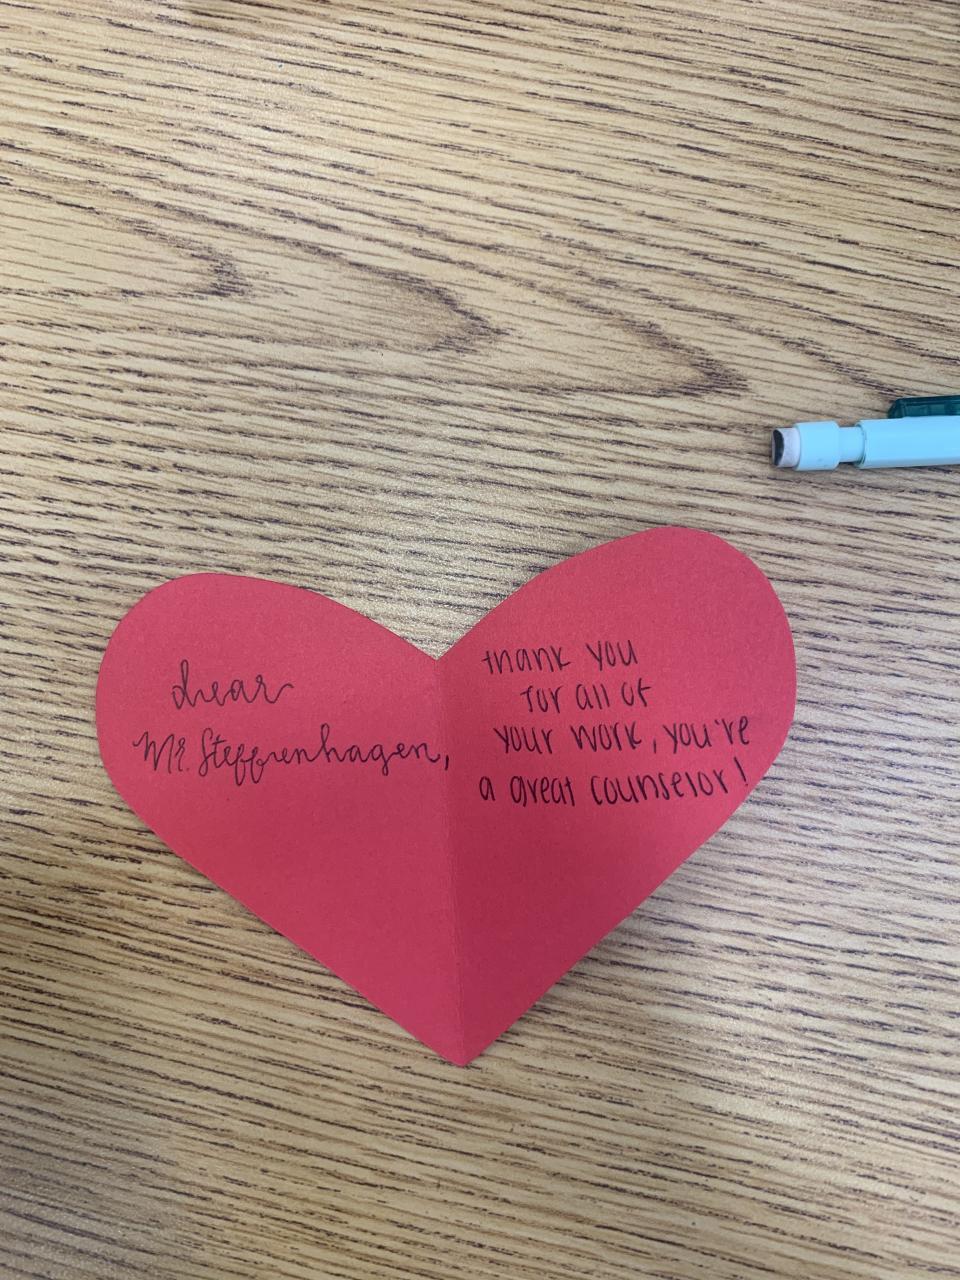 dear
Mr. Steffenhagen,
thank you
for all of
your work, you're
a great counselor!